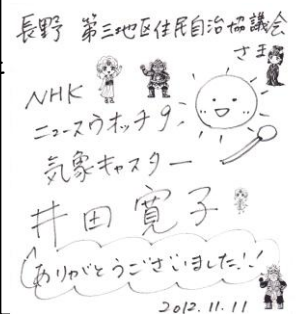 長野 第三地区住民自治協議会
さま
NHK
ニュースウオッチ9
気象キャスター
井田寛子
ありがとうございました!!
2012.11.11